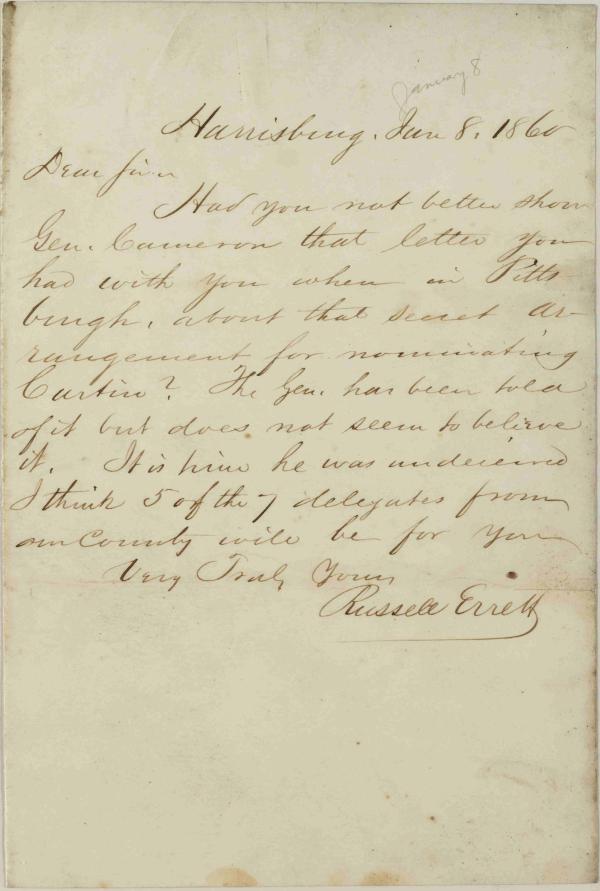 January 8
Harrisburg, Jan 8, 1860
Dear Sir
Had you not better show
Gen. Cameron that letter you
had with you when in Pitts-
burgh, about that secret ar-
rangement for nominating
Curtin? The Gen. has been told
of it but does not seem to believe
it. It is time he was undeceived
I think 5 of the 7 delegates from
our County will be for you
Very Truly Yours
Russell Errett